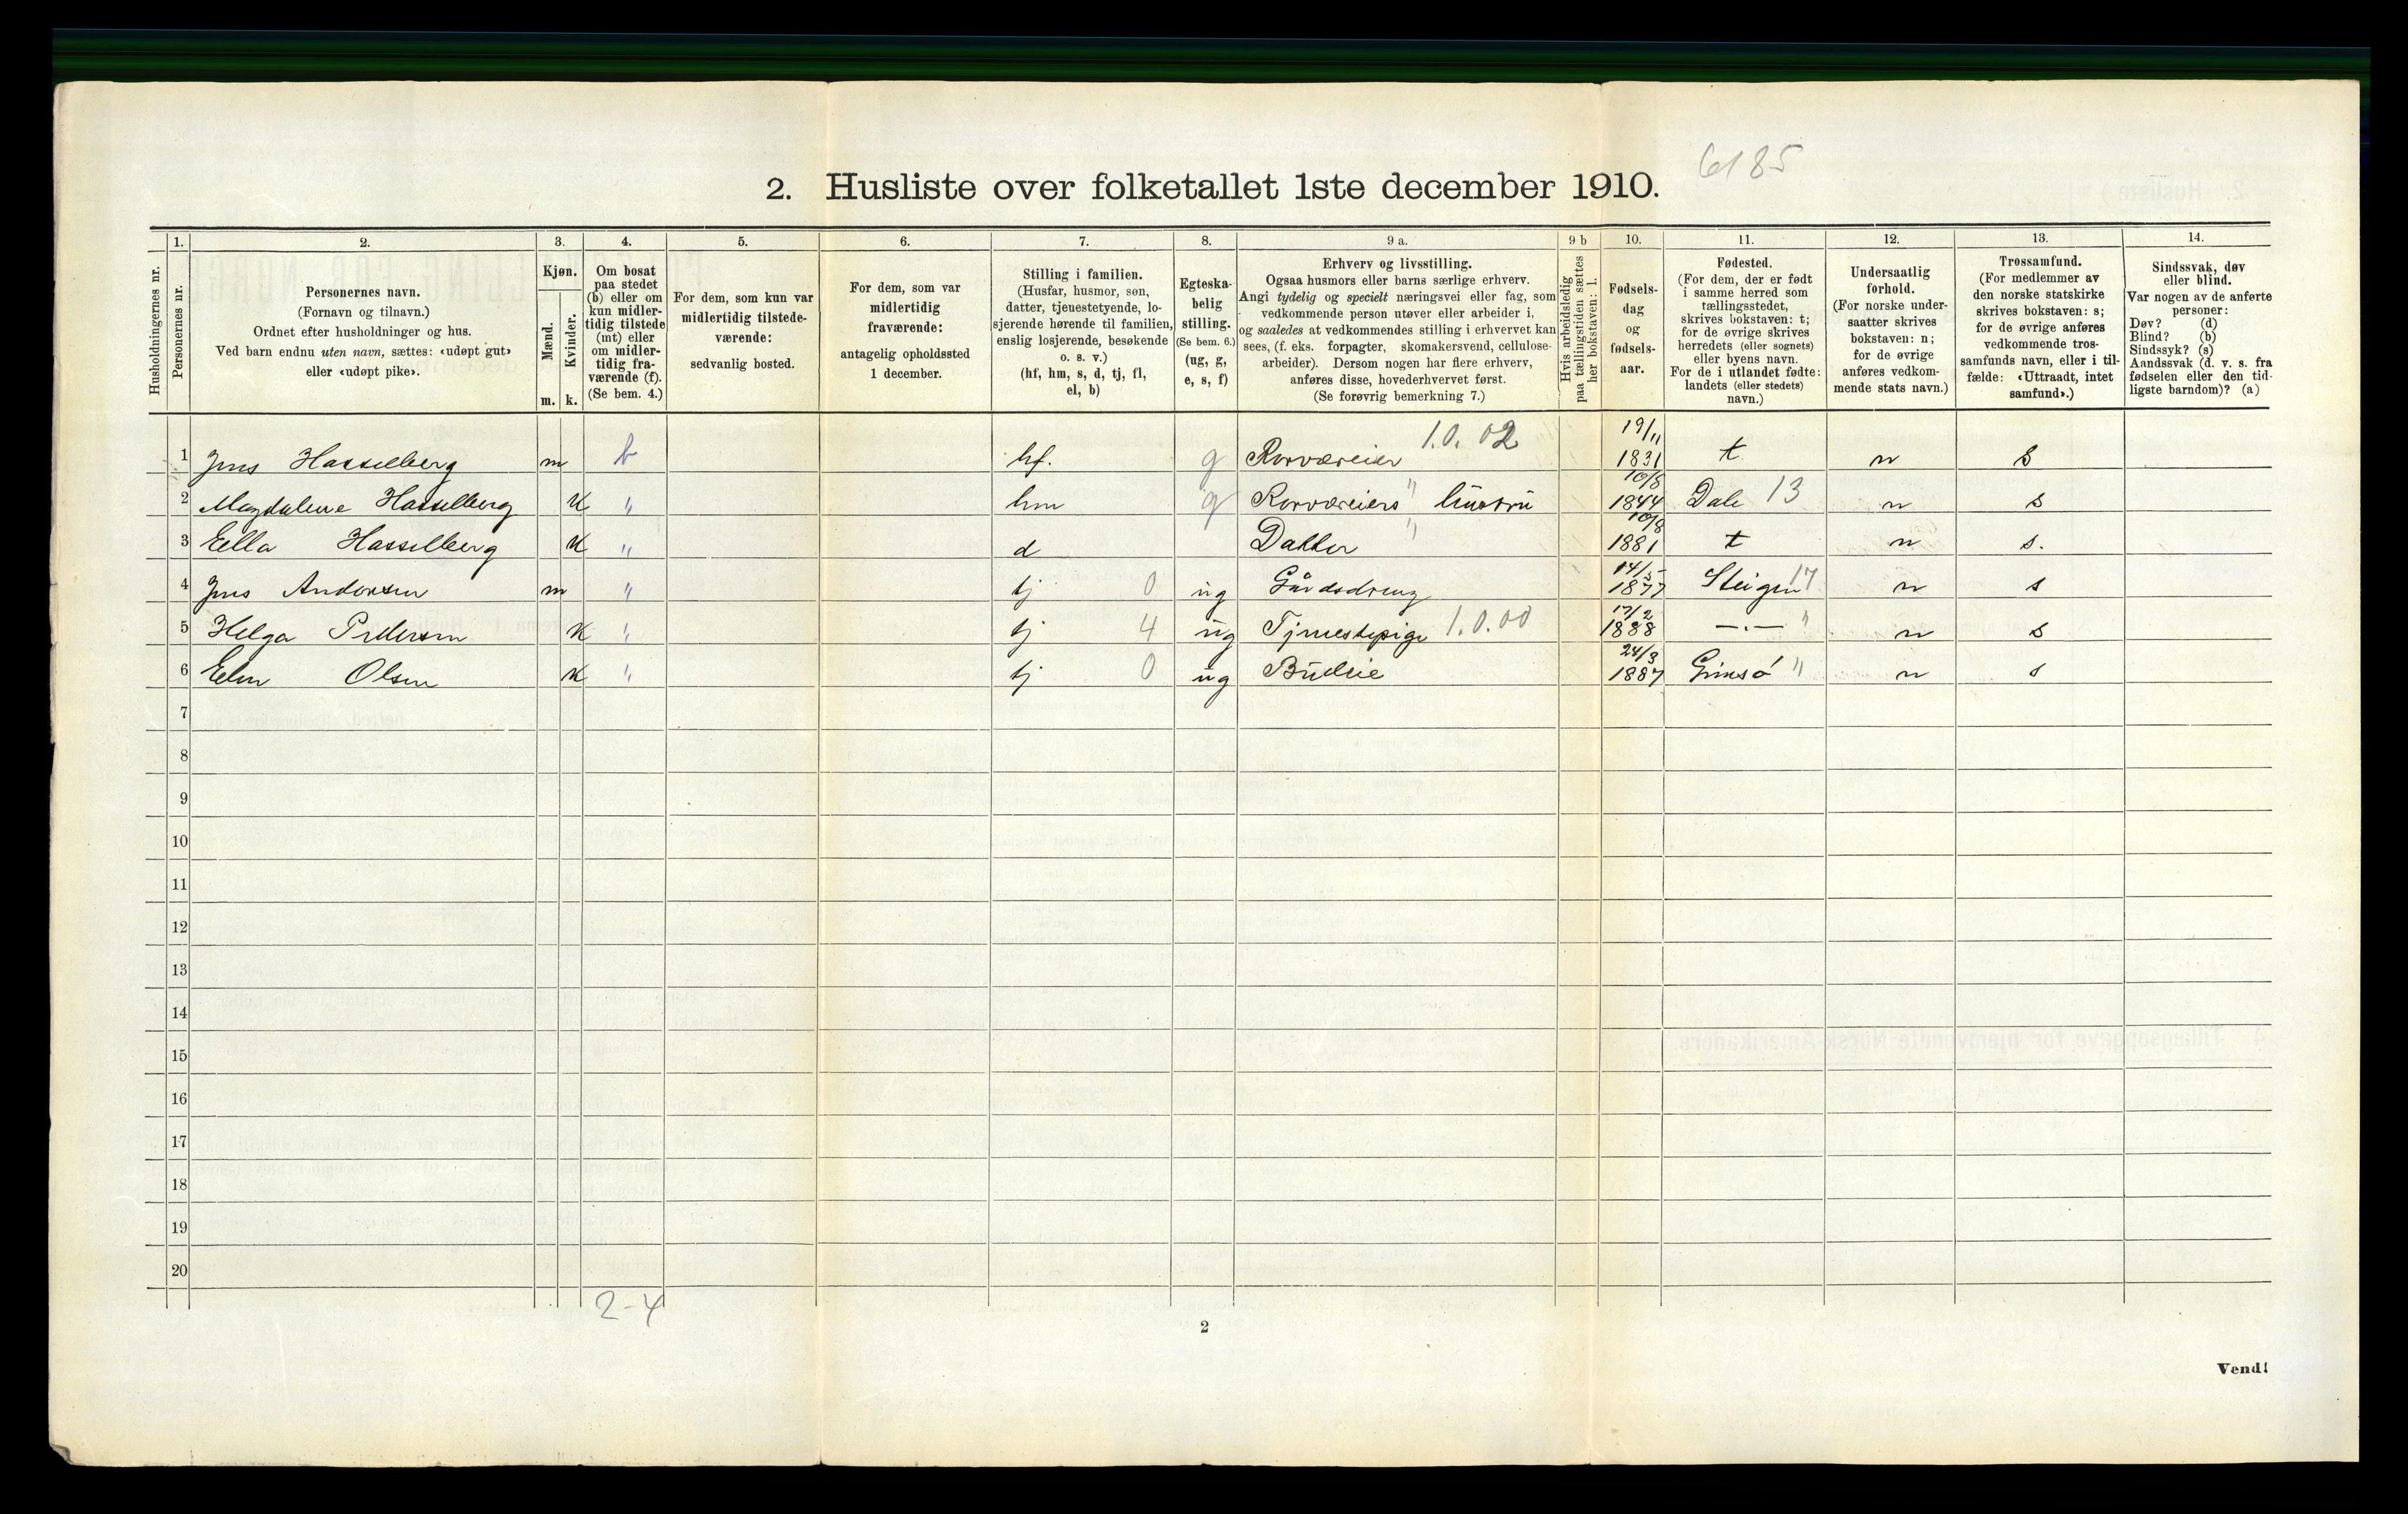 6185
2. Husliste over folketallet 1ste december 1910.
1. 2. 3. 4. 5. 6. 7. 8. 9 a. 9 b 10. 11. 12. 13. 14.
Husholdningernes nr.
Personernes nr.
Personernes navn.
(Fornavn og tilnavn.)
Ordnet efter husholdninger og hus.
Ved barn endnu uten navn, sættes: «udøpt gut»
eller «udøpt pike».
Kjøn.
Mænd.
Kvinder.
m. k.
Om bosat
paa stedet
(b) eller om
kun midler-
tidig tilstede
(mt) eller
om midler-
tidig fra-
værende (f).
(Se bem. 4.)
For dem, som kun var
midlertidig tilstede-
værende:
sedvanlig bosted.
For dem, som var
midlertidig
fraværende:
antagelig opholdssted
1 december.
Stilling i familien.
(Husfar, husmor, søn,
datter, tjenestetyende, lo-
sjerende hørende til familien,
enslig losjerende, besøkende
o. s. v.)
(hf, hm, s, d, tj, fl,
el, b)
Egteska-
belig
stilling.
(Se bem. 6.)
(ug, g,
e, s, f)
Erhverv og livsstilling.
Ogsaa husmors eller barns særlige erhverv.
Angi tydelig og specielt næringsvei eller fag, som
vedkommende person utøver eller arbeider i,
og saaledes at vedkommendes stilling i erhvervet kan
sees, (f. eks. forpagter, skomakersvend, cellulose-
arbeider). Dersom nogen har flere erhverv,
anføres disse, hovederhvervet først.
(Se forøvrig bemerkning 7.)
Hvis arbeidsledig
paa tællingstiden sættes
her bokstaven: l.
Fødsels-
dag
og
fødsels-
aar.
Fødested.
(For dem, der er født
i samme herred som
tællingsstedet,
skrives bokstaven: t;
for de øvrige skrives
herredets (eller sognets)
eller byens navn.
For de i utlandet fødte:
landets (eller stedets)
navn.)
Undersaatlig
forhold.
(For norske under-
saatter skrives
bokstaven: n;
for de øvrige
anføres vedkom-
mende stats navn.)
Trossamfund.
(For medlemmer av
den norske statskirke
skrives bokstaven: s;
for de øvrige anføres
vedkommende tros-
samfunds navn, eller i til-
fælde: «Uttraadt, intet
samfund».)
Sindssvak, døv
eller blind.
Var nogen av de anførte
personer:
Døv? (d)
Blind? (b)
Sindssyk? (s)
Aandssvak (d. v. s. fra
fødselen eller den tid-
ligste barndom)? (a)
1 Jens Hasselberg m b hf. g Rorværeier 1.0.02 19/11 1831 t n s
2 Magdalene Hasselberg K " hm g Rorværeiers " hustru 10/8 1844 Dale 13 n s
3 Ella Hasselberg K " d Datter " 10/8 1881 t n s.
4 Jens Andersen m " tj 0 ug Gårdsdreng 14/5 1877 Steigen 17 n s
5 Helga Pedersen K " tj 4 ug Tjenestepige 1.0.00 17/2 1888 —.— " n s
6 Elen Olsen K " tj 0 ug Budeie 24/3 1887 Gimsø " n s
7
8
9
10
11
12
13
14
15
16
17
18
19
20
2-4
2
Vend!